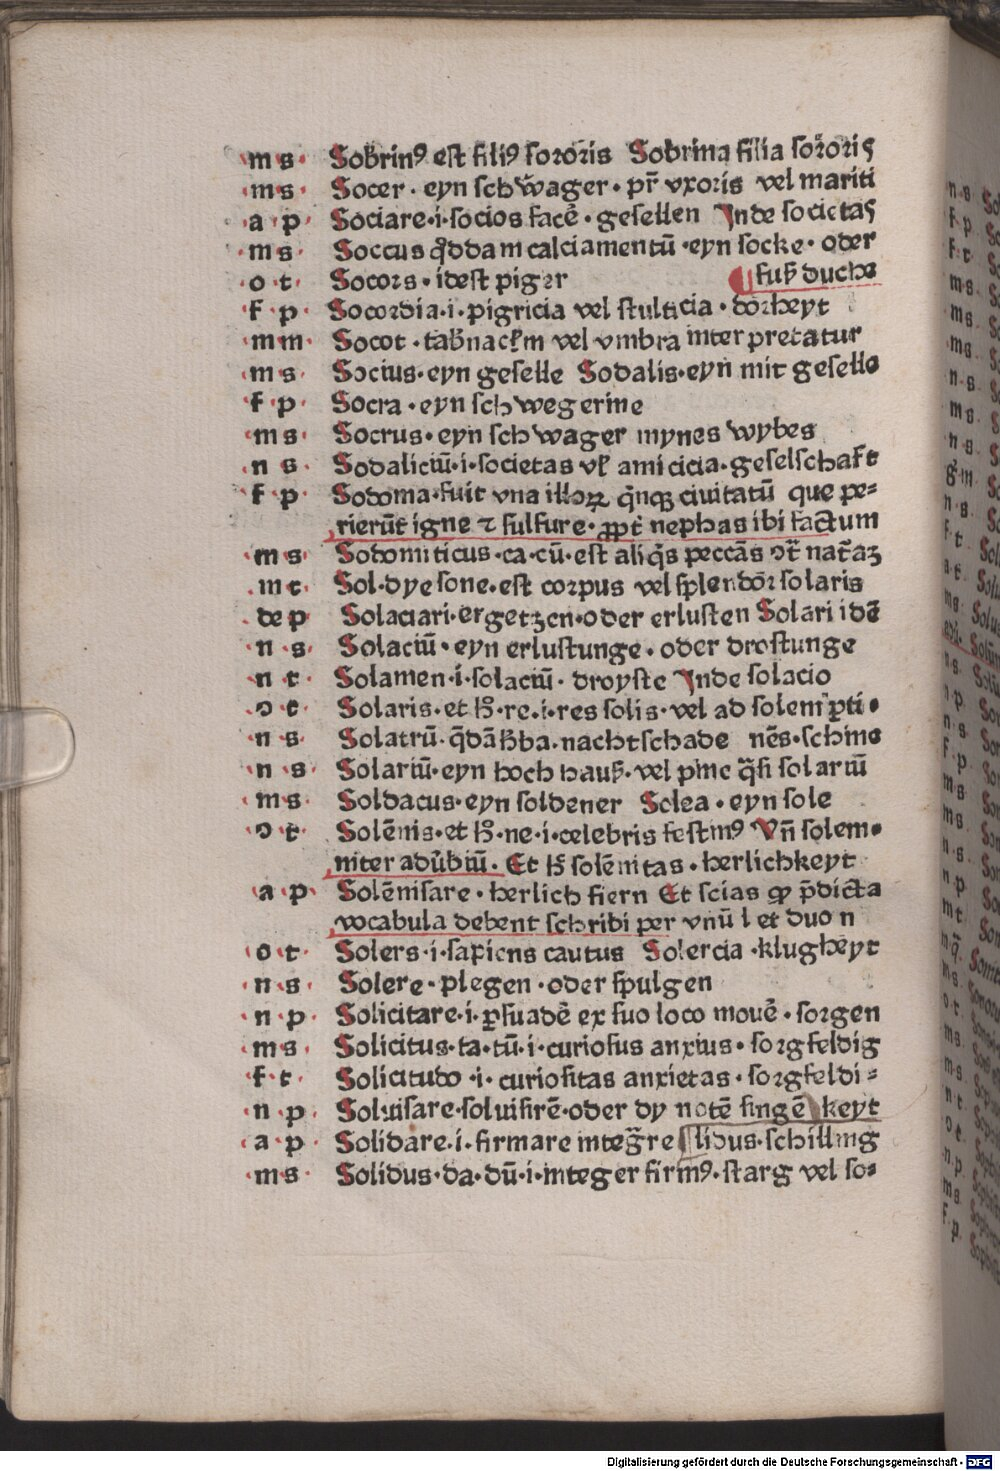 ·m s· Sobrinꝰ est filiꝰ sororis Sobrina filia sororis
·m s· Socer · eyn schwager · pr̄ vxoris vel mariti
·a p· Sociare·i·socios facē · gesellen Inde societas
·m s· Soccus qddam calciamentū ·eyn socke · oder
·o t· Socors · idest piger fuß duche
·f p· Socordia·i·pigricia vel stulticia · dorheyt
·m m· Socot · tab̄nacl̄m vel vmbra interpretatur
·m s· Socius·eyn geselle Sodalis·eyn mit geselle
·f p· Socra · eyn schwegerine
·m s· Socrus · eyn schwager mynes wybes
·n s· Sodaliciū·i·societas vl̄ amicicia·geselschaft
·f p· Sodoma·fuit vna illoꝝ q̄nqꝫ ciuitatū que pe⸗
rierūt igne ⁊ sulfure·ꝓpt̄ nephas ibi factum
·m s· Sodomiticus·ca·cū·est aliq̄s peccās ↄt̄ nat̄aꝫ
·m t· Sol·dye sone·est corpus vel splendor solaris
·de p· Solaciari·ergetzen·oder erlusten Solari idē
·n s· Solaciū · eyn erlustunge · oder drostunge
·n t· Solamen·i·solaciū· droyste Inde solacio
·o t· Solaris·et h̄·re·i·res solis·vel ad solem ꝑti·
·n s· Solatrū·q̄dā h̄ba·nachtschade nēs·schine
·n s· Solariū·eyn hoch hauß·vel pinc q̄si solariū
·m s· Soldacus·eyn soldener Solea · eyn sole
·o t· Solēnis·et h̄·ne·i·celebris festinꝰ Vn̄ solem·
niter adūbiū· Et h̄ solēnitas · herlichkeyt
·a p· Solēnisare · herlich fiern Et scias ꝙ p̄dicta
vocabula debent schribi per vnū l et duo n
·o t· Solers·i·sapiens cautus Solercia ·klugheyt
·n s· Solere · plegen ·oder spulgen
·n p· Solicitare·i·ꝑsuadē ex suo loco mouē · sorgen
·m s· Solicitus·ta·tū·i·curiosus anxius · sorgfeldig
·f t· Solicitudo ·i· curiositas anxietas · sorgfeldi⸗
·n p· Soluisare·soluisirē·oder dy notē singē keyt
·a p· Solidare·i·firmare inteḡre Slidus·schilling
·m s· Solidus·da·dū·i·integer firmꝰ·starg vel so⸗
Digitalisierung gefördert durch die Deutsche Forschungsgemeinschaft - DFG